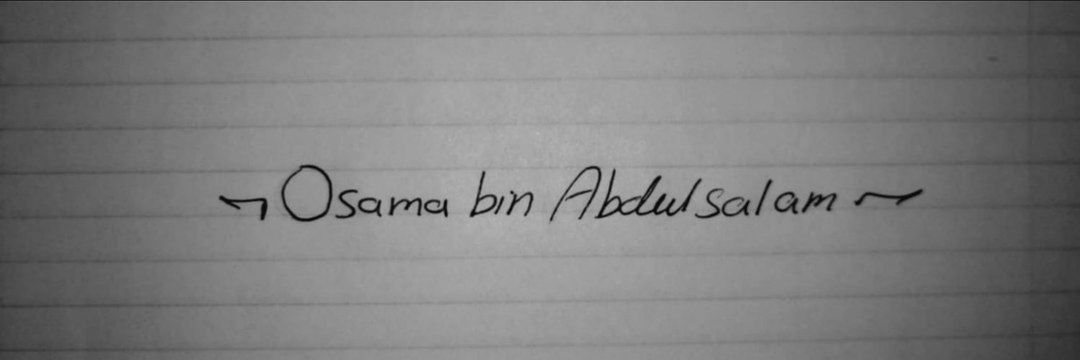 Osama bin Abdulsalam